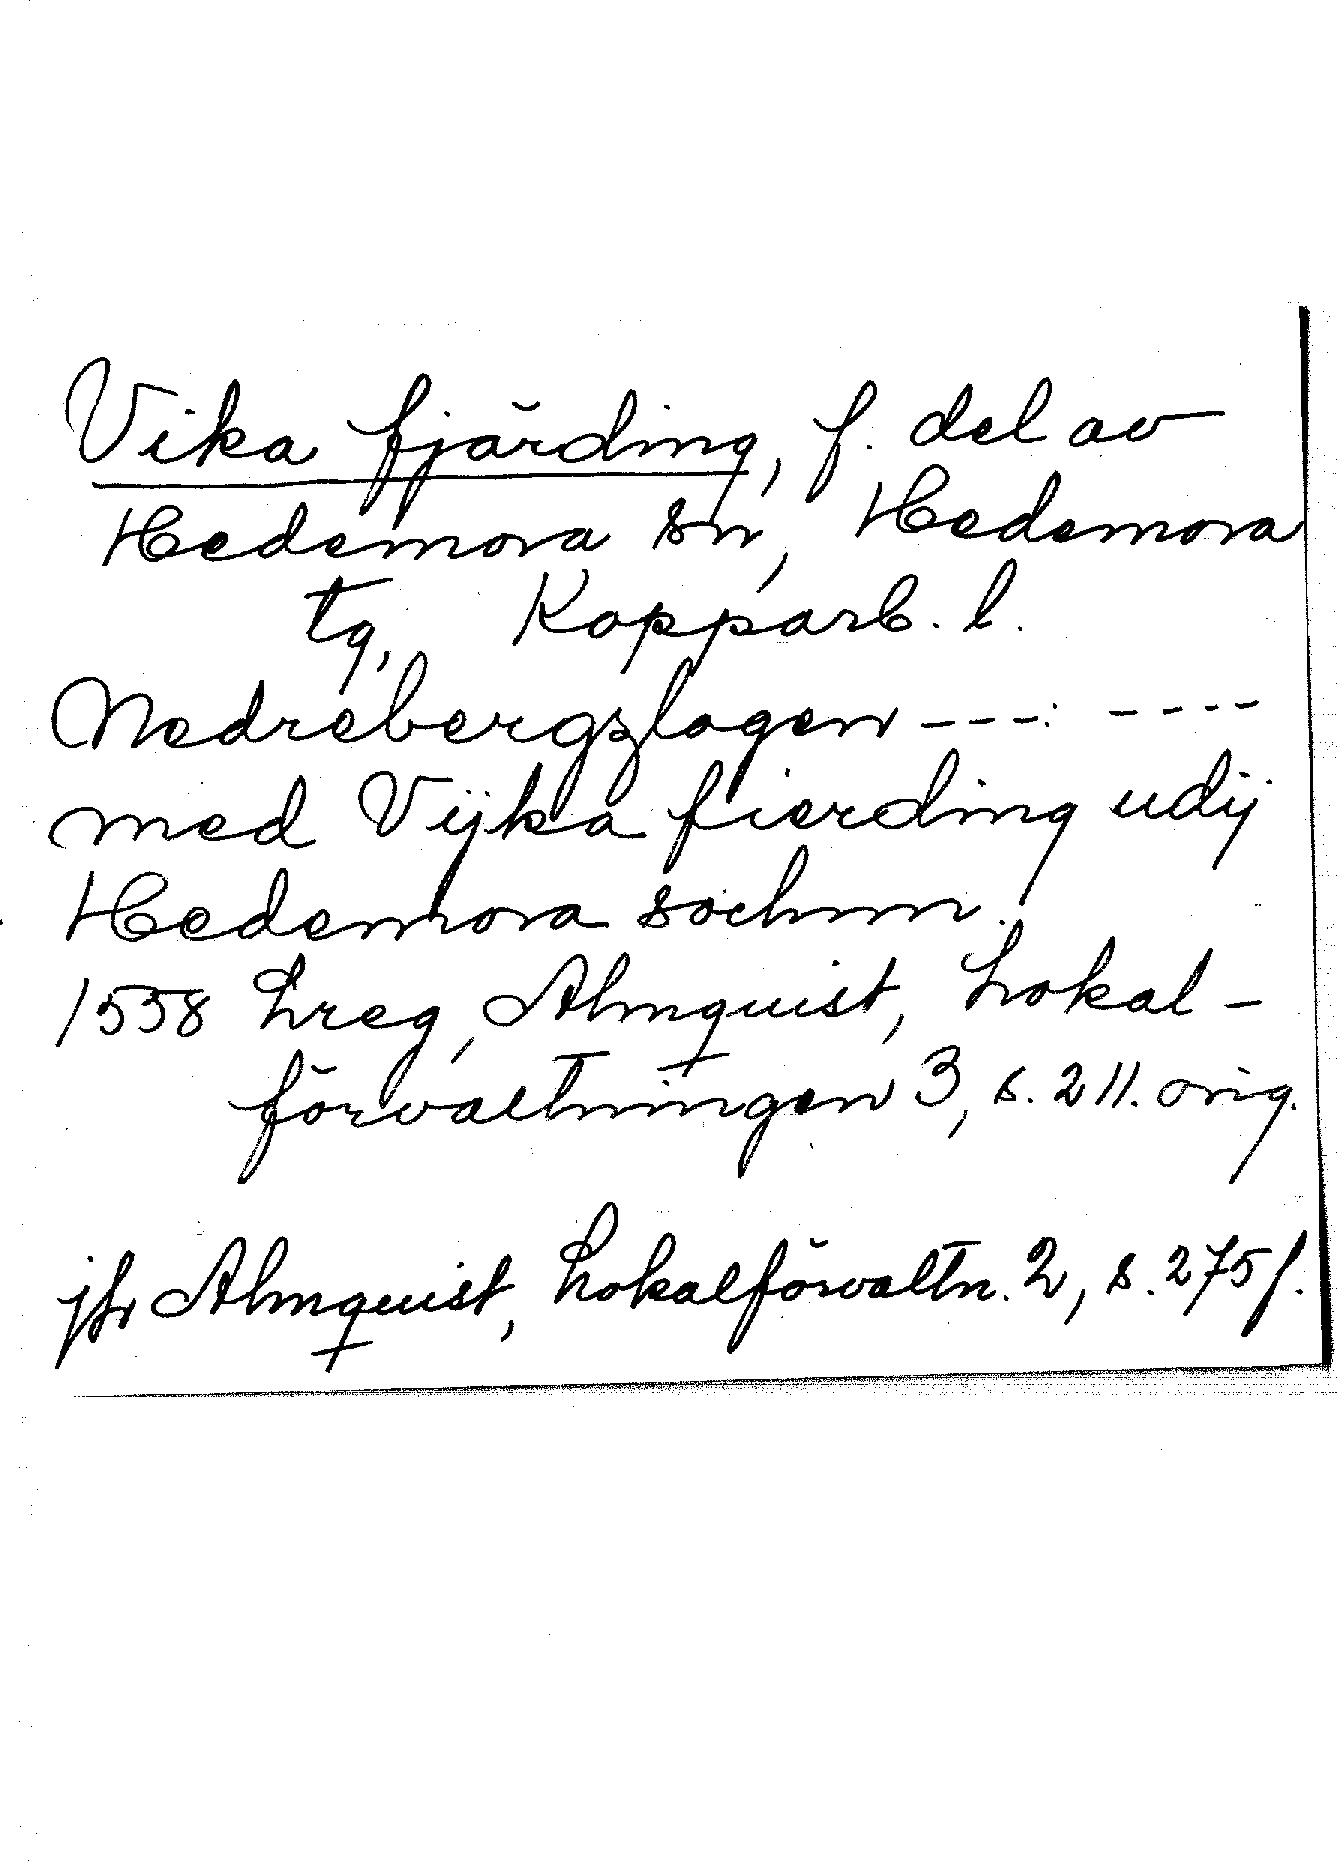 Vika fjärding, f. del av
Hedemora sn, Hedemora
tg, Kopparb. l.
Nedrebergzlagen ---: ----
med Vijka fierding udij
Hedemora sochnn.
1558 Lreg, Almquist, Lokal-
förvaltningen 3, s. 211. orig.
jfr Almquist, Lokalförvaltn. 2, s. 275 f.